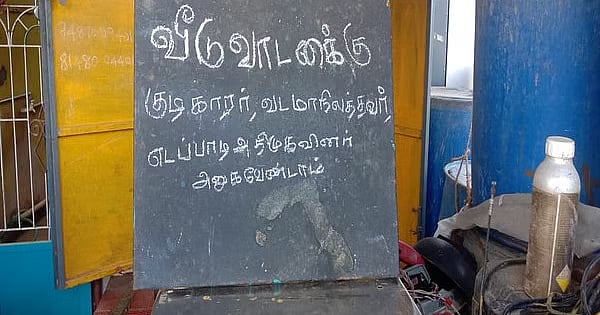 வீடு வாடகைக்கு
குடி காரர், வடமாநிலத்தவர்,
எடப்பாடி அ திமுகவினர்
அனுகவேண்டாம்